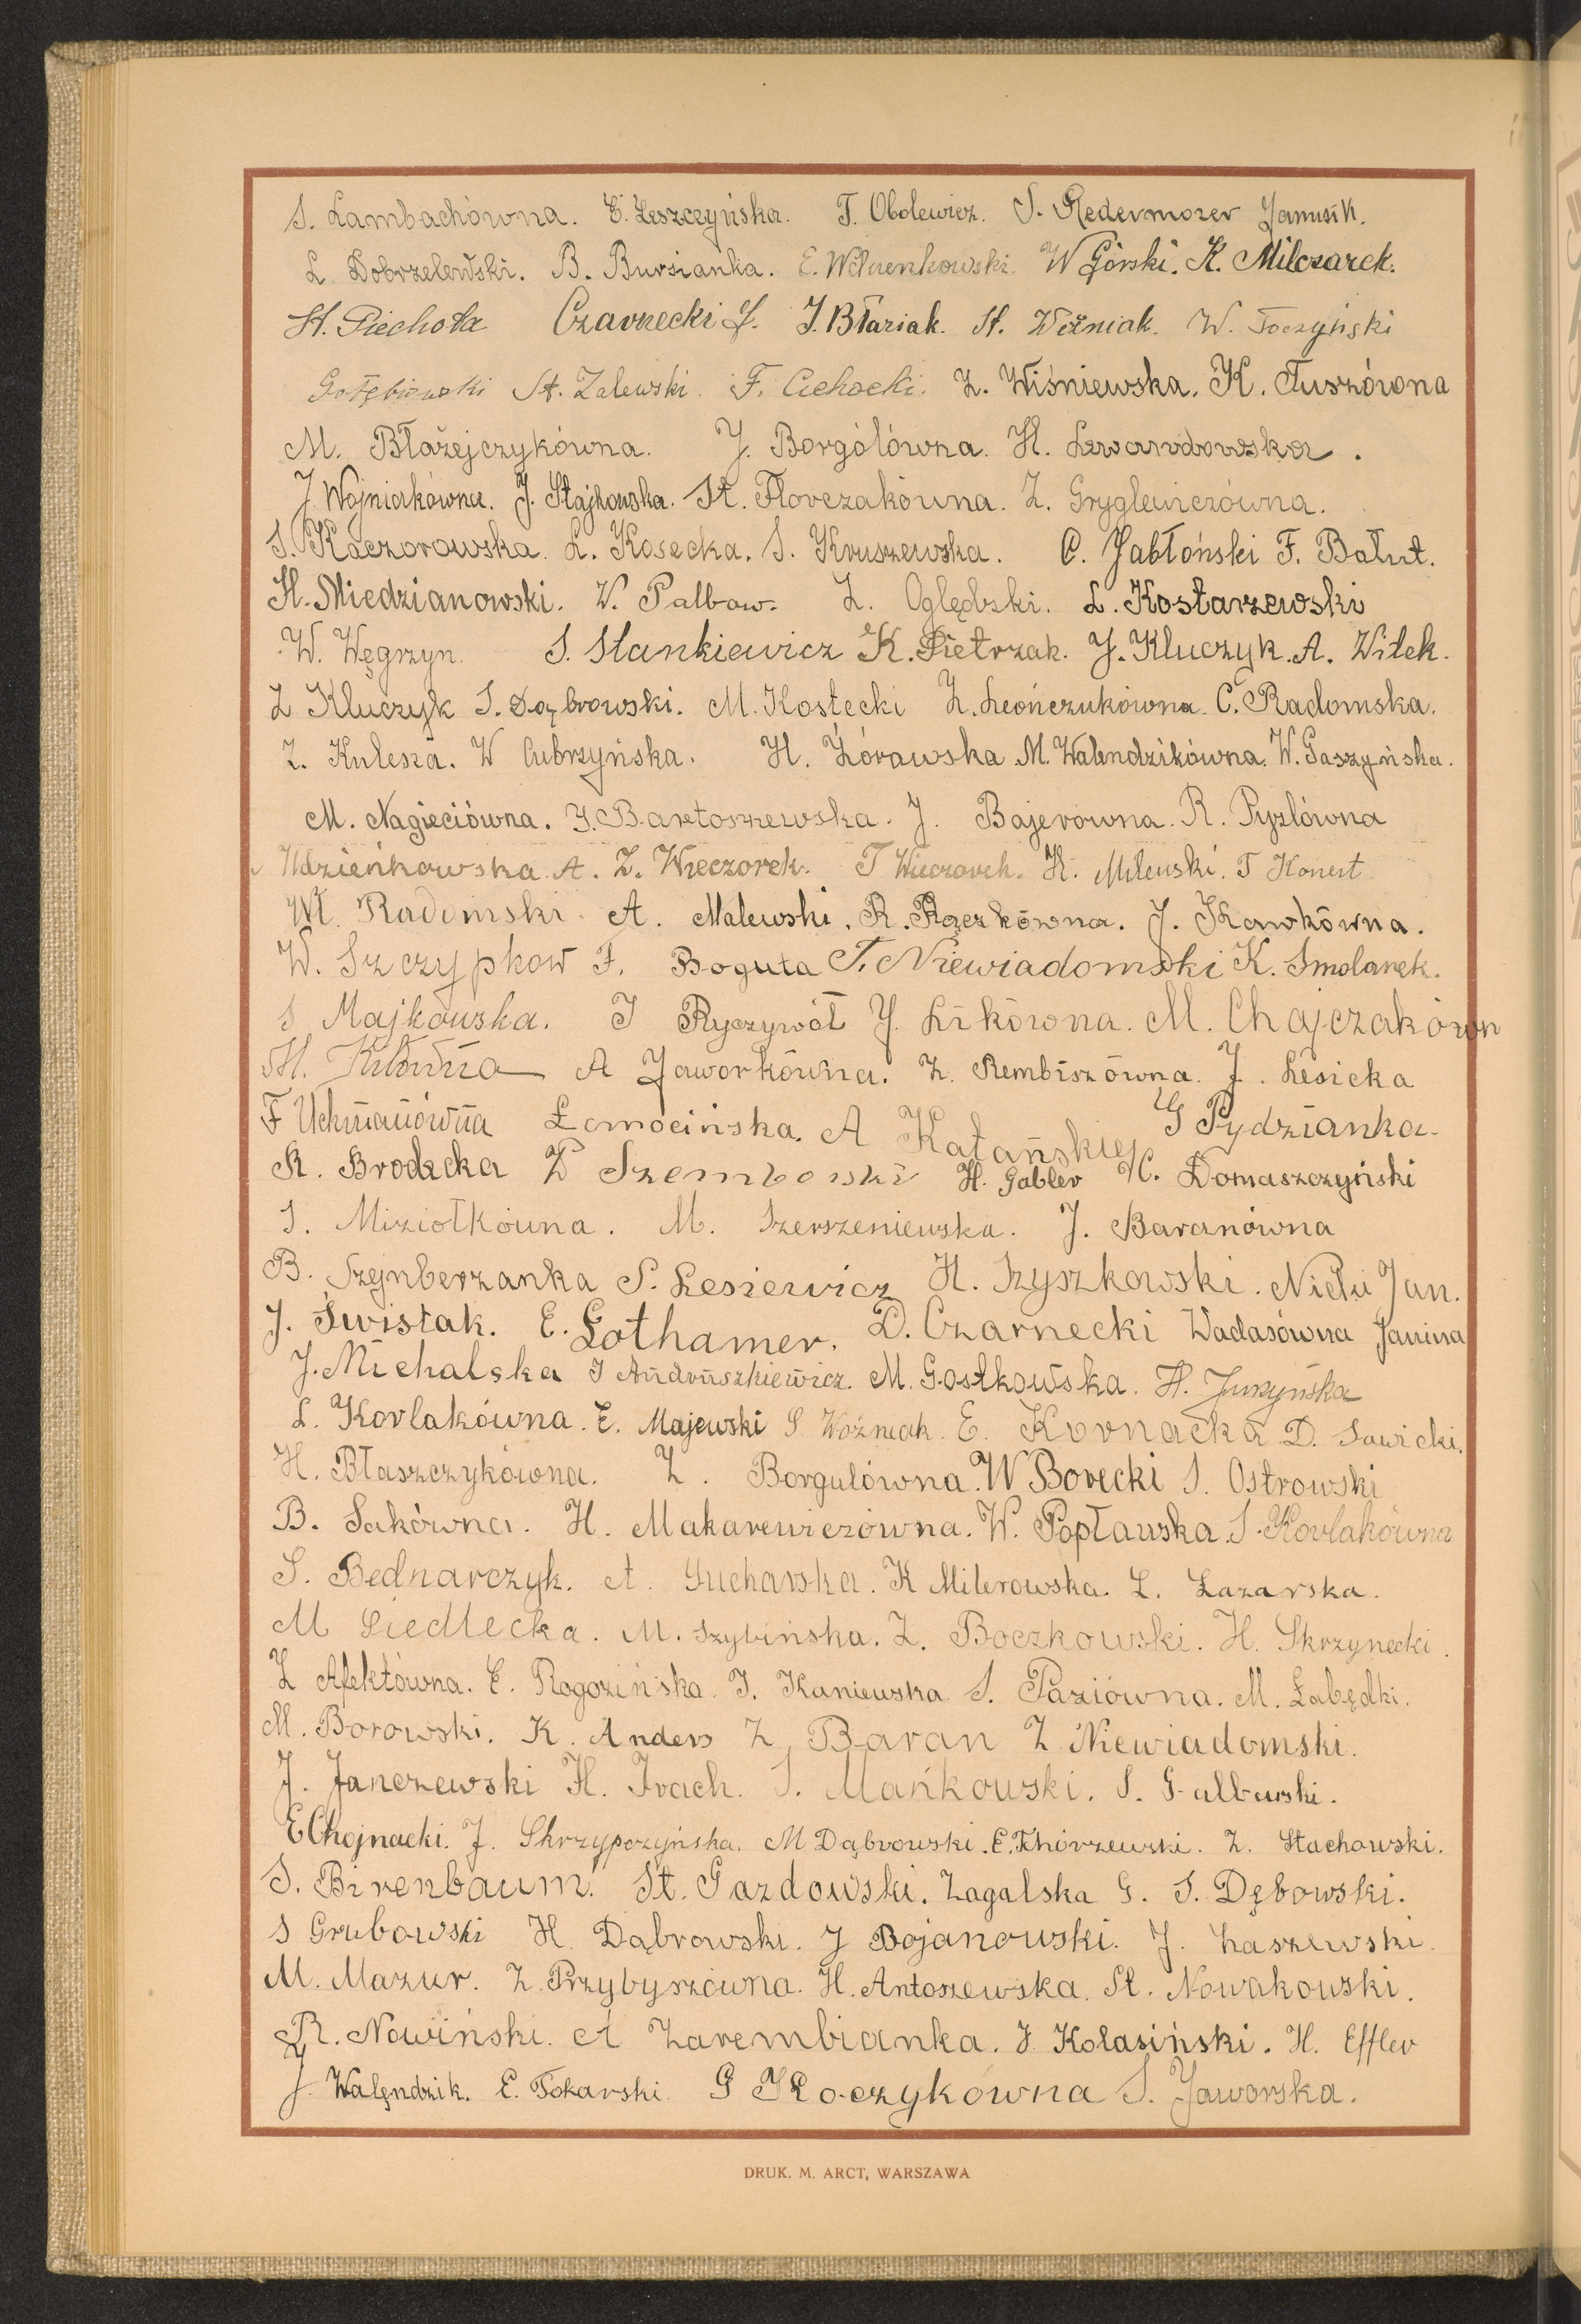 S. Lambachówna. E. Leszczyńska. T. Obolewicz. S. Redermozer Janusik.
L. Dobrzelewski. B. Bursianka. E. W Górski. K. Milczarek.
St. Piechota Czarnecki J. J. Błaziak. St. Woźniak. W. Toczyński
Gołębiewski St. Zalewski. F. Cichocki. Z. Wiśniewska. K. Tuszówna
M. Błażejczykówna. J. Borgólówna. H. Lewandowska.
J. Wojniakówna. J. Stajkowska. St. Florczakówna. Z. Gryglewiczówna.
S. Kaczorowska. L. Kosecka. S. Kruszewska. C. Jabłoński F. Bałut.
H. Miedzianowski. W. Palbow. Z. Oględzki. L. Kostarzewski
W. Węgrzyn. S. Stankiewicz K. Pietrzak. J. Kluczyk. A. Witek.
Z Kluczyk S. Dąbrowski. M. Kostecki Z. Leończukówna. C. Radomska.
Z. Kulesza. W Cubrzyńska. H. Żórawska M. Walendzikówna. W. Gaszyńska.
M. Nagieciówna. J. Bartoszewska. J. Bajerówna. R. Pyzlówna
Udzieńkowska A. Z. Wieczorek. T Wieczorek. H. Milewski. T Konert.
Wł. Radomski. A. Malewski. R. Rączkówna. J. Kawkówna.
W. Szczypkow F. Boguta T. Niewiadomski K. Smolarek.
S Majkowska. J Ryczywół J. Likówna. M. Chajczakówn
M. A Jaworkówna. Z. Rembiszówna. J. Lesicka
F Uchmanówna Łomocińska. A Katańskiej G Pydzianka.
R. Brodzcka Z Szembowski H. Gabler K. Domaszczyński
S. Miziołkówna. M. Szerszeniewska. J. Baranówna
B. Szejnberzanka S. Lesiewicz H. Szyszkowski. Jan.
J. Świstak. E. Lothamer. D. Czarnecki Wadasówna Janina
J. Michalska J Andruszkiewicz. M. Gostkowska. H. Jurzyńska
L. Korlakówna. E. Majewski S Woźniak. E. Kornacka D. Sawicki.
H. Błaszczykówna. Z. Borgulówna. W Borecki S. Ostrowski
B. Sakówna. H. Makarewiczówna. W. Popławska. S. Korlakówna
S. Bednarczyk. A. Sucharska. K Milerowska. L. Łazarska.
M Siedlecka. M. Szybińska. Z. Boczkowski. H. Skrzynecki.
Z Afektówna. E. Rogozińska. J. Kaniewska S. Paziówna. M. Łabędki.
M. Borowski. K. Anders Z Baran Z Niewiadomski.
J. Janczewski H. Trach. S. Mańkowski. S. Galbarski.
E Chojnacki. J. Skrzypczyńska. M Dąbrowski. E. Tchórzewski. Z. Stachowski.
S. Birenbaum. St. Gazdowski. Zagalska G. S. Dębowski.
S Grubowski H. Dąbrowski. J Bojanowski. J. Laszewski.
M. Mazur. Z. Przybyszówna. H. Antoszewska. St. Nowakowski.
R. Nowiński. A Zarembianka. J. Kolasiński. H. Effler
J. Walęndzik. E. Tokarski. G Kloczykówna S. Jaworska.
DRUK. M. ARCT, WARSZAWA